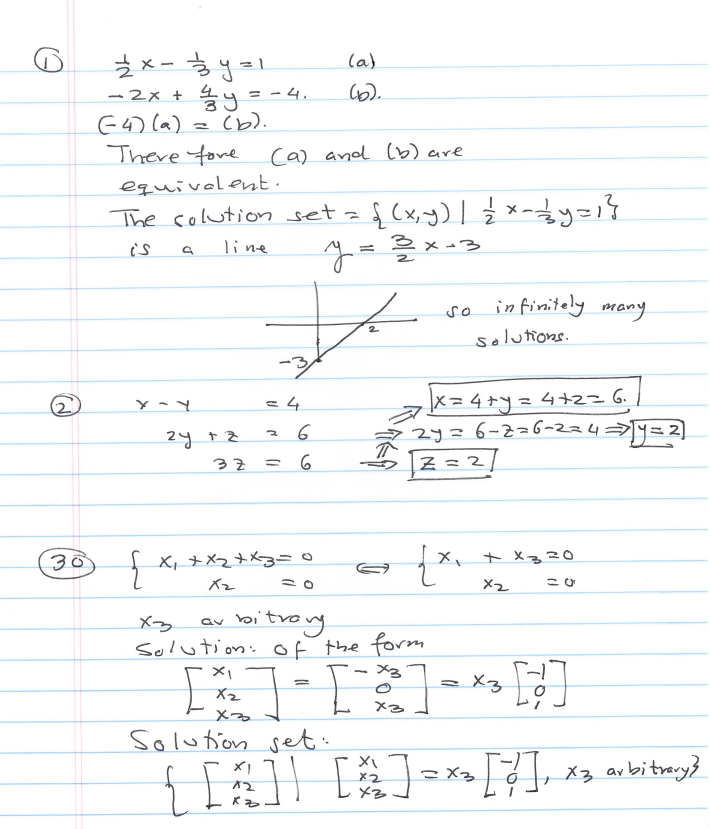 ① ½x - ⅓y = 1 (a)
-2x + 4/3 y = -4. (b).
(-4)(a) = (b).
Therefore (a) and (b) are
equivalent.
The solution set = {(x,y) | ½x - ⅓y = 1}
is a line y = 3/2 x - 3
2
-3
so infinitely many
solutions.
② x - y = 4 ⇒ x = 4 + y = 4 + 2 = 6.
2y + z = 6 ⇒ 2y = 6 - z = 6 - 2 = 4 ⇒ y = 2
3z = 6 ⇒ z = 2
㉚ { x₁ + x₂ + x₃ = 0 ⇔ { x₁ + x₃ = 0
x₂ = 0 x₂ = 0
x₃ arbitrary
Solution: of the form
[x₁ x₂ x₃] = [-x₃ 0 x₃] = x₃ [-1 0 1]
Solution set:
{ [x₁ x₂ x₃] | [x₁ x₂ x₃] = x₃ [-1 0 1], x₃ arbitrary}